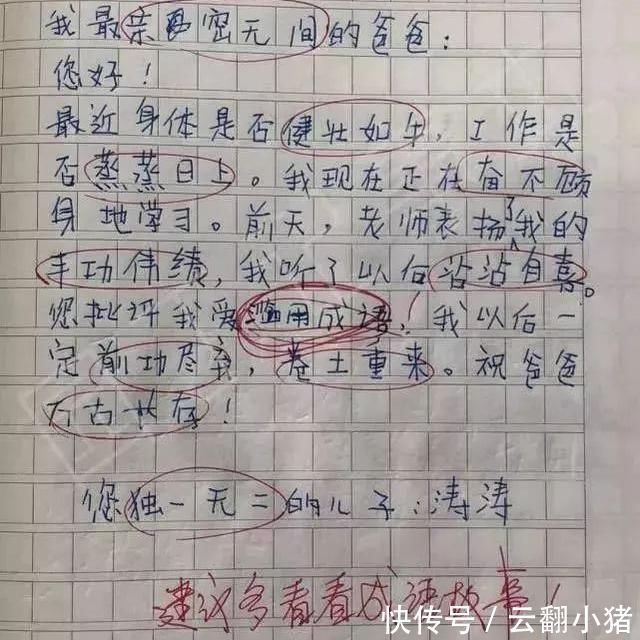 我最亲密无间的爸爸：
您好！
最近身体是否健壮如牛，工作是
否蒸蒸日上。我现在正在奋不顾
身地学习。前天，老师表扬了我的
丰功伟绩，我听了以后沾沾自喜。
您批评我爱滥用成语！我以后一
定前功尽弃，卷土重来。祝爸爸
万古长存！
您独一无二的儿子：涛涛
建议多看看成语故事！
快传号 / 云翻小猪